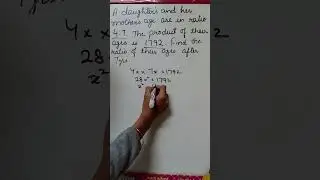 A daughter's and her
mother's age are in ratio
4:7. The product of their
ages is 1792. Find the
ratio of their ages after
7yrs.
4x × 7x = 1792
28x² = 1792
x²